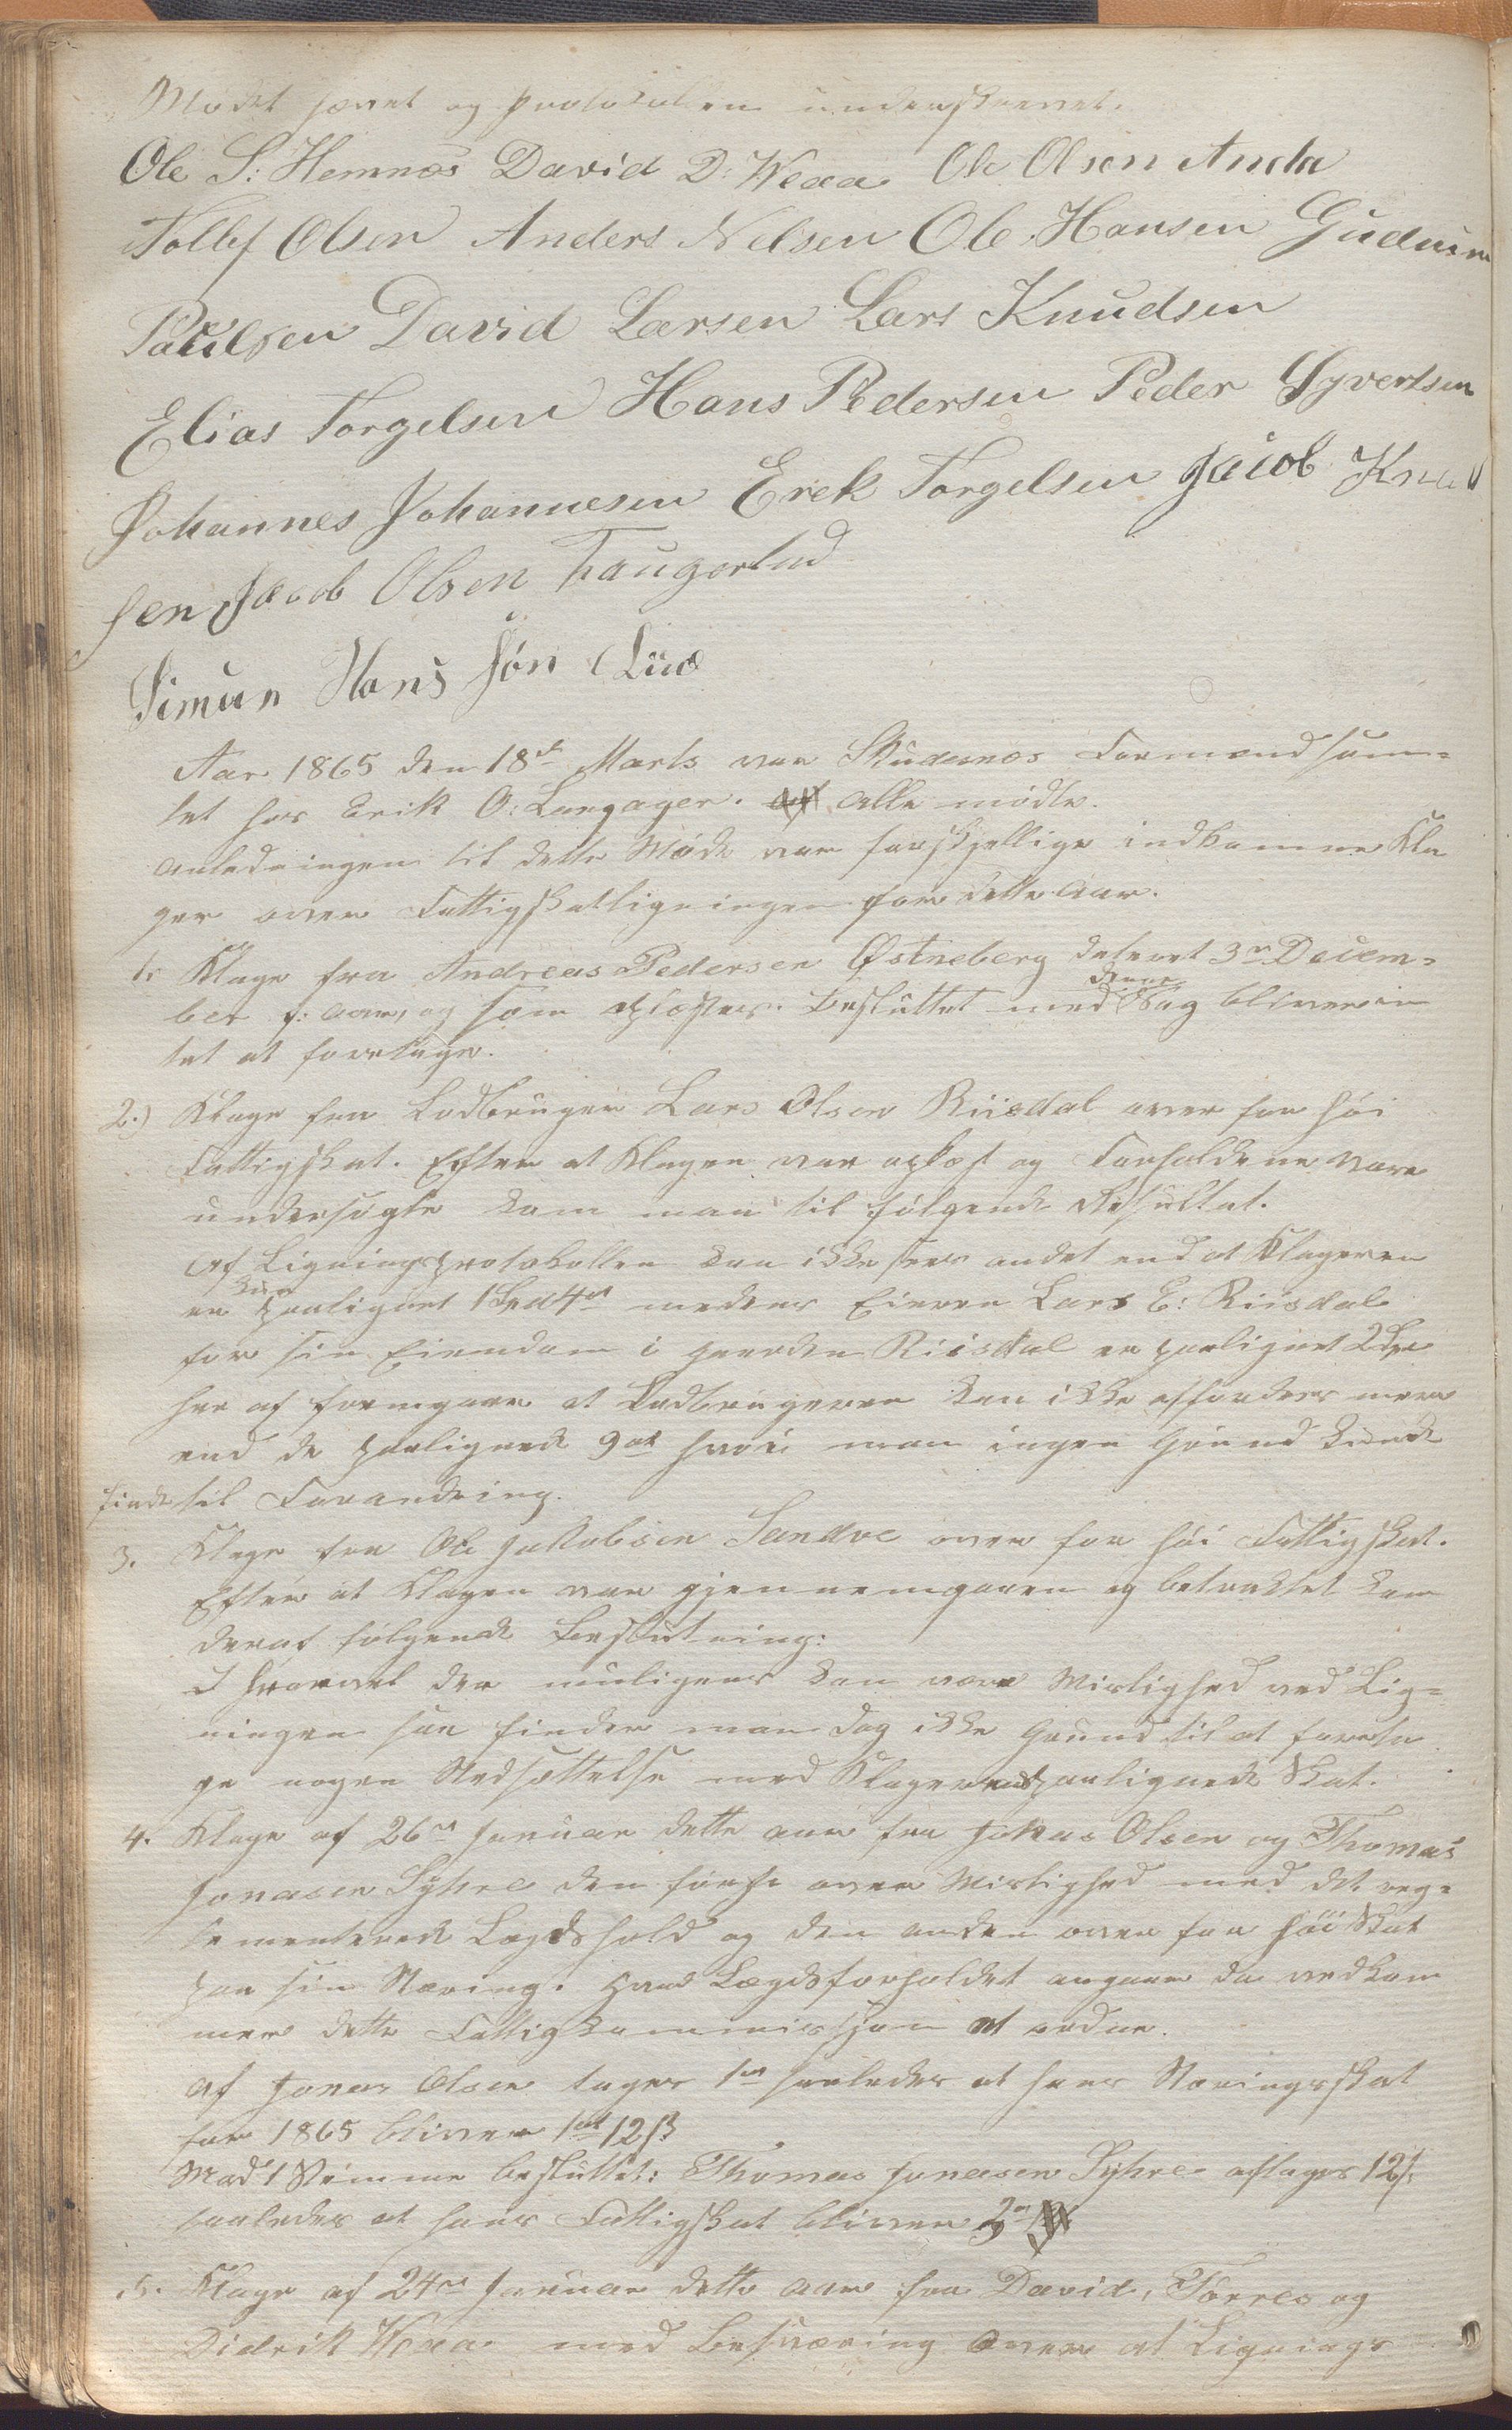 Mødet hævet og Protokolen underskrevet.
Ole S: Hemnæs David D: Weaa Ole Olsen Anda
Tollef Olsen Anders Nelsen Ole Hansen Gudmun
Paulsen David Larsen Lars Knudsen
Elias Torgelsen Hans Pedersen Peder Syvertsen
Johannes Johannesen Erek Torgelsen Jacob Knud
sen Jacob Olsen
Simun Hans Søn Liæ
Aar 1865 den 18de Marts var Skudesnæs Formænd sam-
let hos Erik O: Langager. Alle mødte.
Anledningen til dette Møde var forskjellige indkomne Kla
ger over Fattigskatligningen for dette Aar.
1. Klage fra Andreas Pedersen Østneberg dateret 3de Decem-
ber f: Aar, og som oplæstes. Besluttet med denne Sag bliver in
tet at foretage.
2.) Klage fra Lodbruger Lars Olsen Riisdal over for høi
Fattigskat. Efter at Klagen var oplæst og Forholdene vare
undersøgte kom man til følgende Resultat.
Af Ligningsprotokollen kan ikke sees andet end at Klageren
er kun paalignet 1 Spd 4 ort medens Eieren Lars E: Riisdal
for sin Eiendom i Gaarden Riisdal er paalignet 2 Spd
her af fremgaar at Lodbrugeren kan ikke affordres mere
end de paalignede 9 ort hvori man ingen Grund kunde
finde til Forandring.
3. Klage fra Ole Jakobsen Sandve over for høi Fattigskat.
Efter at Klagen var gjennemgaaen og betraktet kom
deraf følgende Beslutning:
I hvorvel der muligens kan være Mislighed ved Lig-
ningen saa finder man dog ikke Grund til at foreta
ge nogen Nedsættelse med Klagerens paalignede Skat.
4. Klage af 26de Januar dette Aar fra Jonas Olsen og Thomas
Jonasen Syhre den første over Mislighed med det reg-
lementerede Lægdshold og den anden over for høi Skat
paa sin Næring. Hvad Lægdsforholdet angaar da vedkom
mer dette Fattigkommissjon at ordne.
Af Jonas Olsen tages 1 ort saaledes at hans Næringsskat
for 1865 bliver 1 ort 12 ß
Med 1 Stemme besluttet: Thomas Jonasen Syhre aftages 12 ß:
saaledes at hans Fattigskat bliver 3 ort
5. Klage af 24de Januar dette Aar fra David, Torres og
Didrik Weaa med Besværing over at Lignings